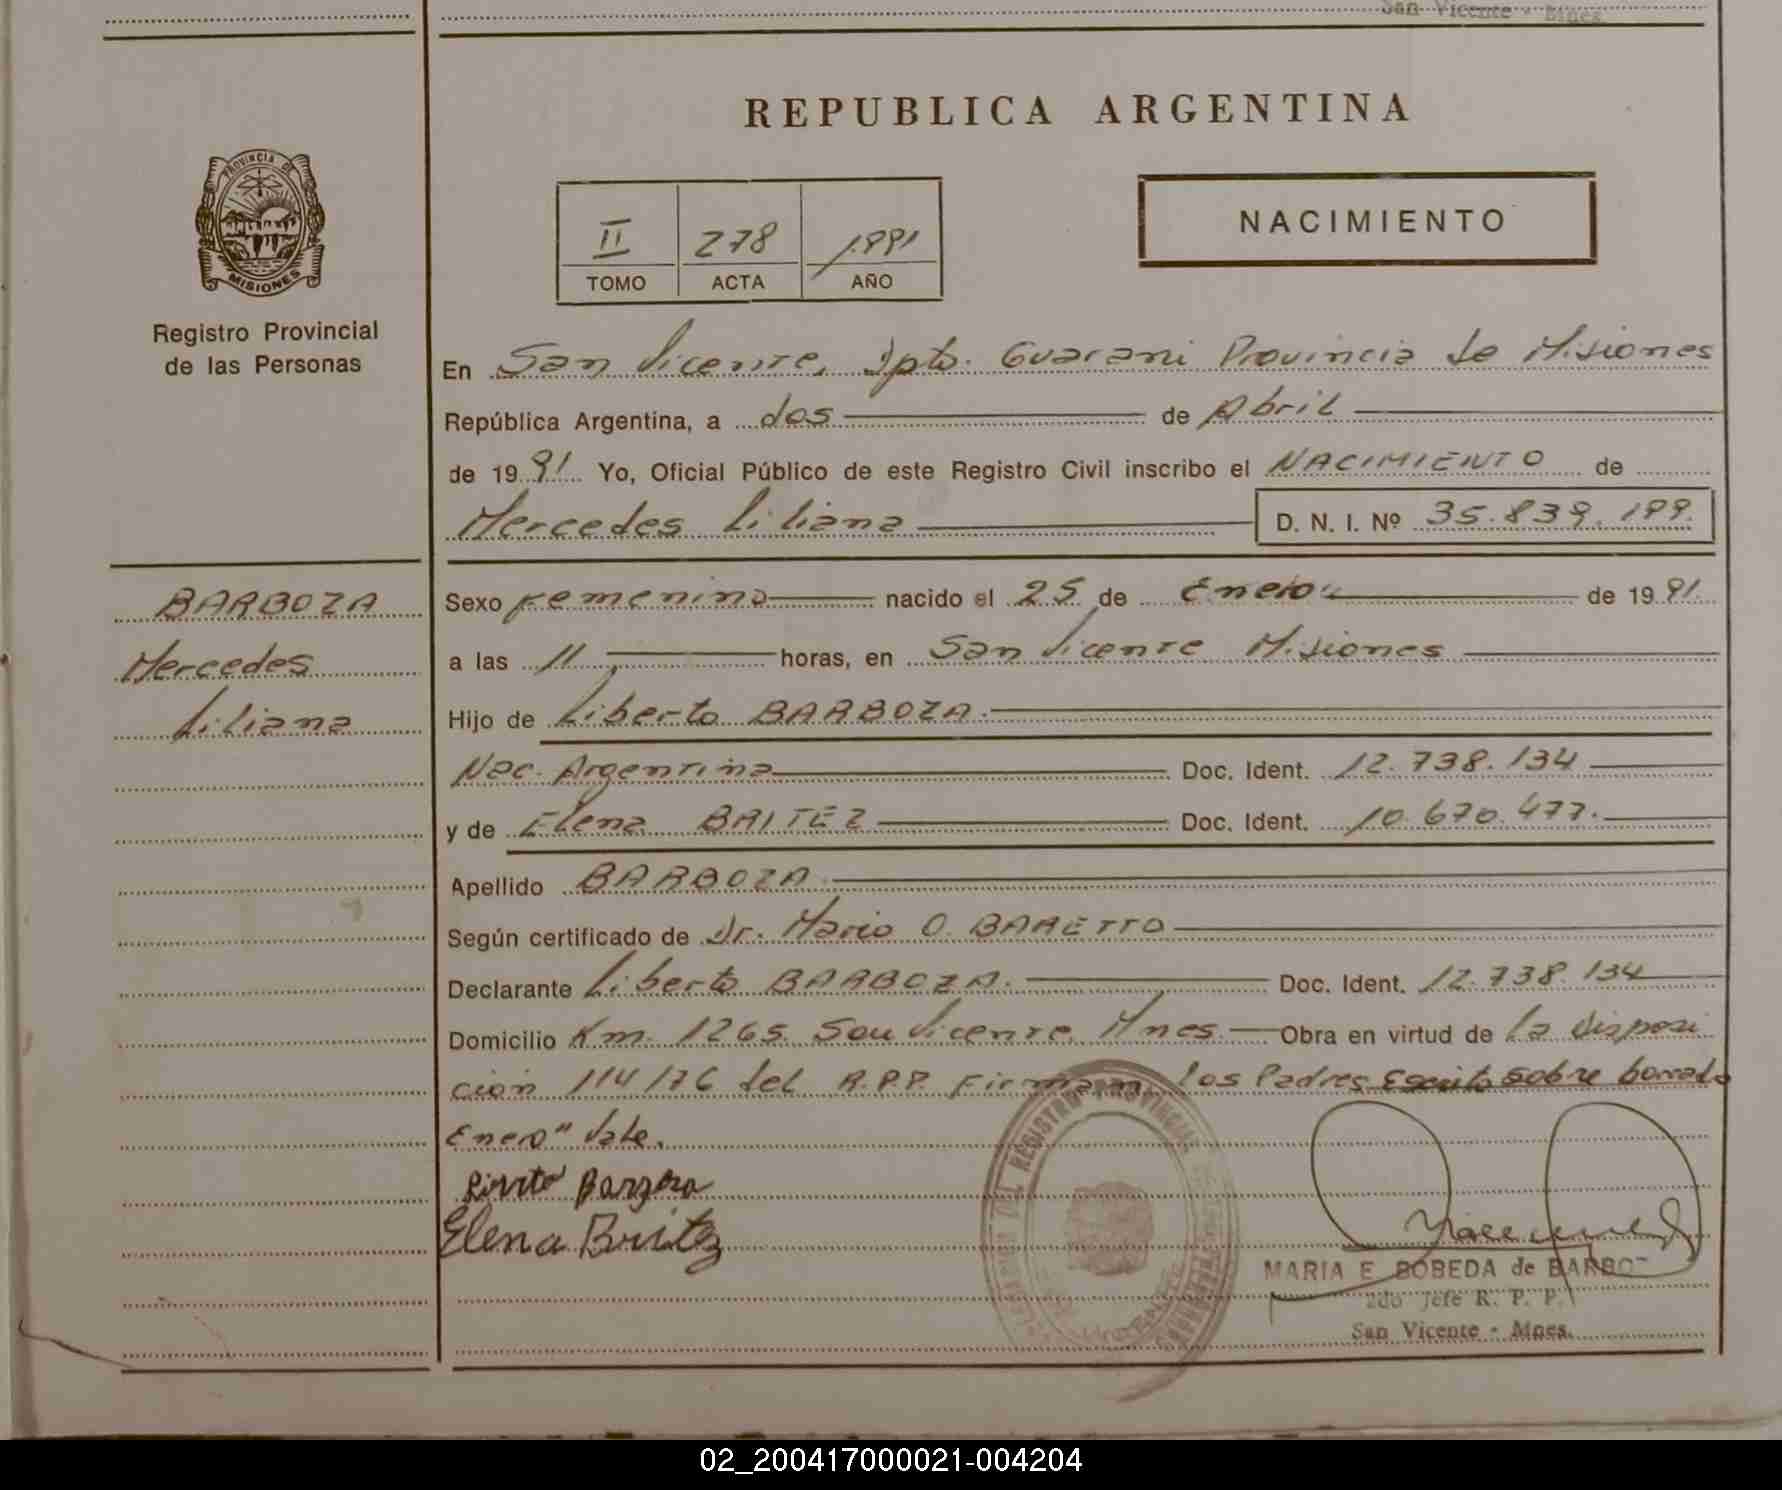 San Vicente - Mnes.
REPUBLICA ARGENTINA
PROVINCIA DE
MISIONES
Registro Provincial
de las Personas
II 278 1991
TOMO ACTA AÑO
NACIMIENTO
En San Vicente, Dpto. Guarani Provincia de Misiones
República Argentina, a dos de Abril
de 1991 Yo, Oficial Público de este Registro Civil inscribo el NACIMIENTO de
Mercedes Liliana D. N. I. Nº 35.839.199.
BARBOZA
Mercedes
Liliana
Sexo Femenino nacido el 25 de Enero de 1991.
a las 11 horas, en San Vicente Misiones
Hijo de Liberto BARBOZA.
Nac. Argentina Doc. Ident. 12.738.134
y de Elena BRITEZ Doc. Ident. 10.670.477.
Apellido BARBOZA.
Según certificado de Dr. Mario O. BARETTO
Declarante Liberto BARBOZA. Doc. Ident. 12.738.134
Domicilio Km. 1265. San Vicente, Mnes. Obra en virtud de la disposi
ción 114/76 del R.P.P. Firman los Padres Escrito sobre borrado
Enero" Vale.
Elena Britez
REGISTRO PROVINCIAL
MARIA E. BOBEDA de BARBO
2do Jefe R. P. P.
San Vicente - Mnes.
02_200417000021-004204